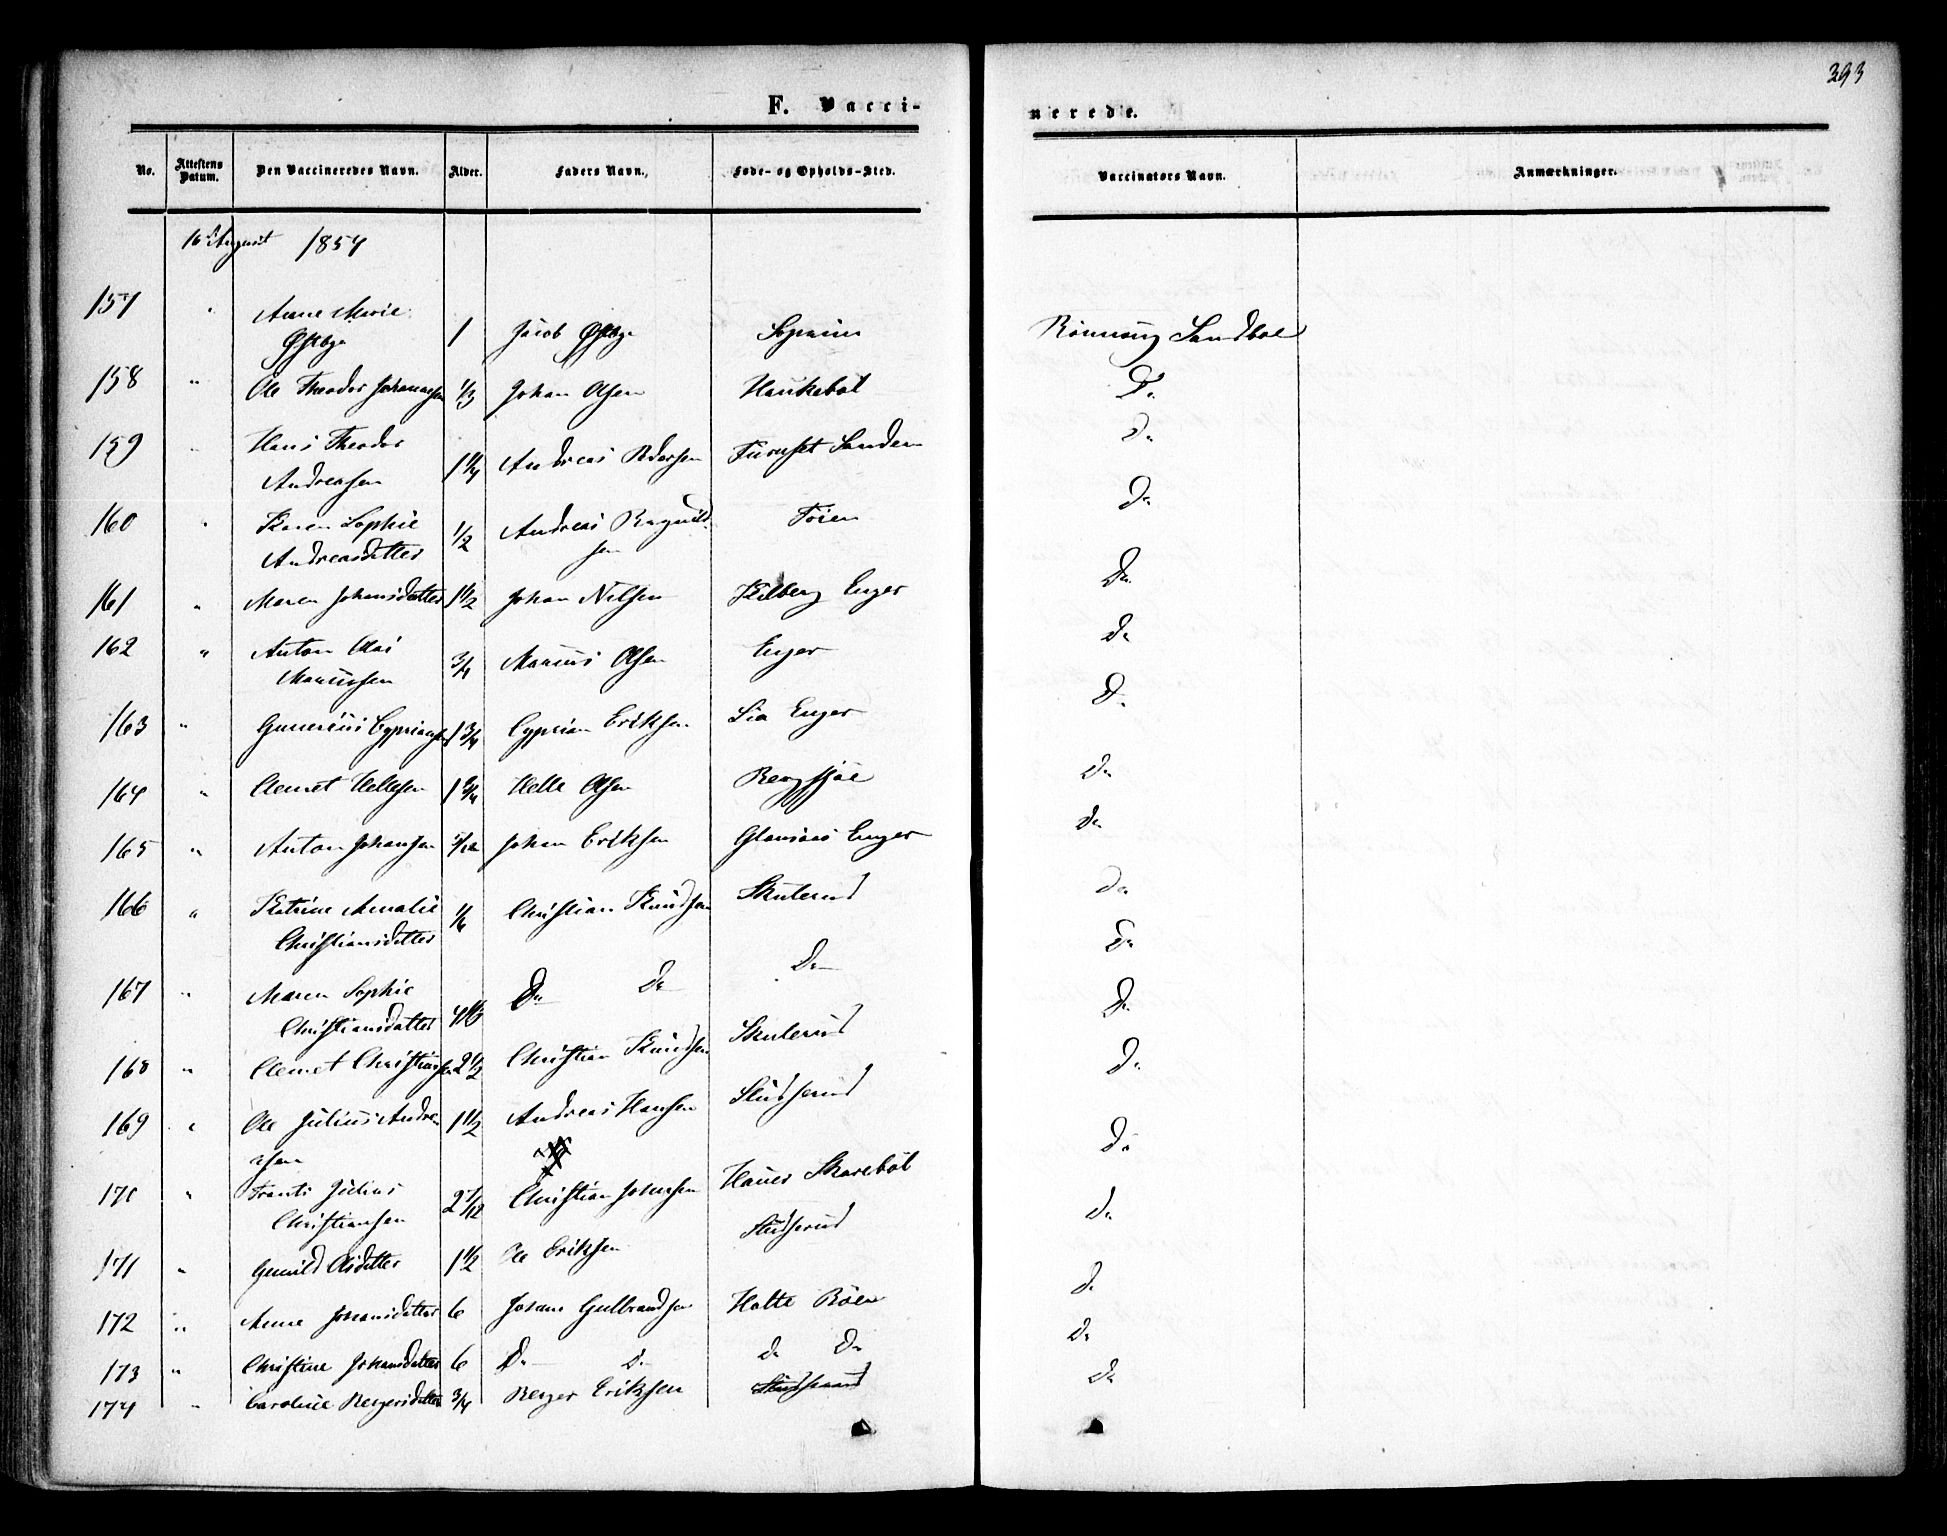 393
F. Vaccinerede.
No. Attestens Datum. Den Vaccineredes Navn. Alder. Faders Navn. Føde- og Opholds-Sted. Vaccinators Navn. Anmærkninger.
16 August 1854
157 " Anne Marie 
Østbye 1 Jacob Østbye Rönnoug Sandbøl
158 " Ole Theodor Johannesen 1/3 Johan Olsen Haukebøl Do
159 " Hans Theodor
Andreasen 1 1/4 Andreas Pedersen Furuset Sanden Do
160 " Karen Sophie
Andreasdatter 1/2 Andreas Ragnild
sen Toien Do
161 " Maren Johansdatter 1 1/2 Johan Nilsen Kilberg Enger Do
162 " Anton Olai
Mariussen 3/4 Marius Olsen Enger Do
163 " Gunerius Cypriansen 1 3/4 Cyprian Eriksen Lia Enger Do
164 " Clemet Hellesen 1 3/4 Helle Olsen Bergsjøe Do
165 " Anton Johansen 5/12 Johan Eriksen Enger Do
166 " Katrine Amalie
Christiansdatter 1/6 Christian Knudsen Skulerud Do
167 " Maren Sophie
Christiansdatter 4 1/3 Do Do Do Do
168 " Clemet Christiansen 2 1/2 Christian Knudsen Skulerud Do
169 " Ole Julius Andre
asen 1 1/2 Andreas Hansen Sludserud Do
170 " Frants Julius
Christiansen 2 7/12 Christian Johnsen Hauer Skarebøl Do
171 " Gunild Olsdatter 1 1/2 Ole Eriksen Sludserud Do
172 " Anne Johansdatter 6 Johan Gulbrandsen Holte Böen Do
173 " Christine Johansdatter 6 Do Do Do Do Do
174 " Caroline Bergersdatter 3/4 Berger Eriksen Sludserud Do